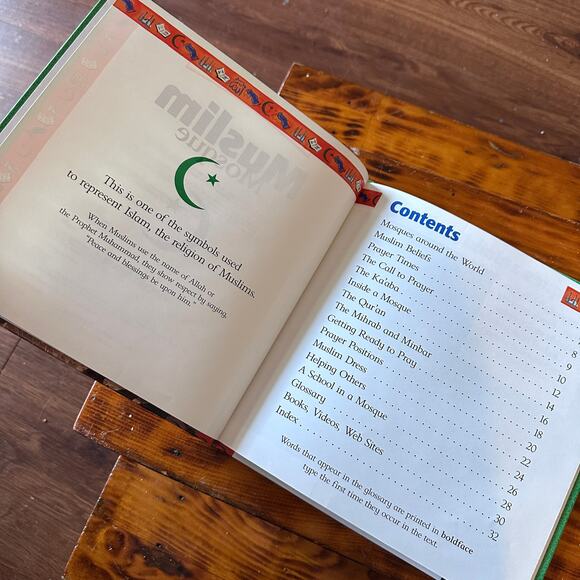 This is one of the symbols used
to represent Islam, the religion of Muslims.
When Muslims use the name of Allah or
the Prophet Muhammad, they show respect by saying,
"Peace and blessings be upon him."
Contents
Mosques around the World
Muslim Beliefs
Prayer Times 8
The Call to Prayer 9
The Ka'aba 10
Inside a Mosque 12
The Qur'an 14
The Mihrab and Minbar 16
Getting Ready to Pray 18
Prayer Positions 20
Muslim Dress 22
Helping Others 24
A School in a Mosque 26
Glossary 28
Books, Videos, Web Sites 30
Index 32
Words that appear in the glossary are printed in boldface
type the first time they occur in the text.